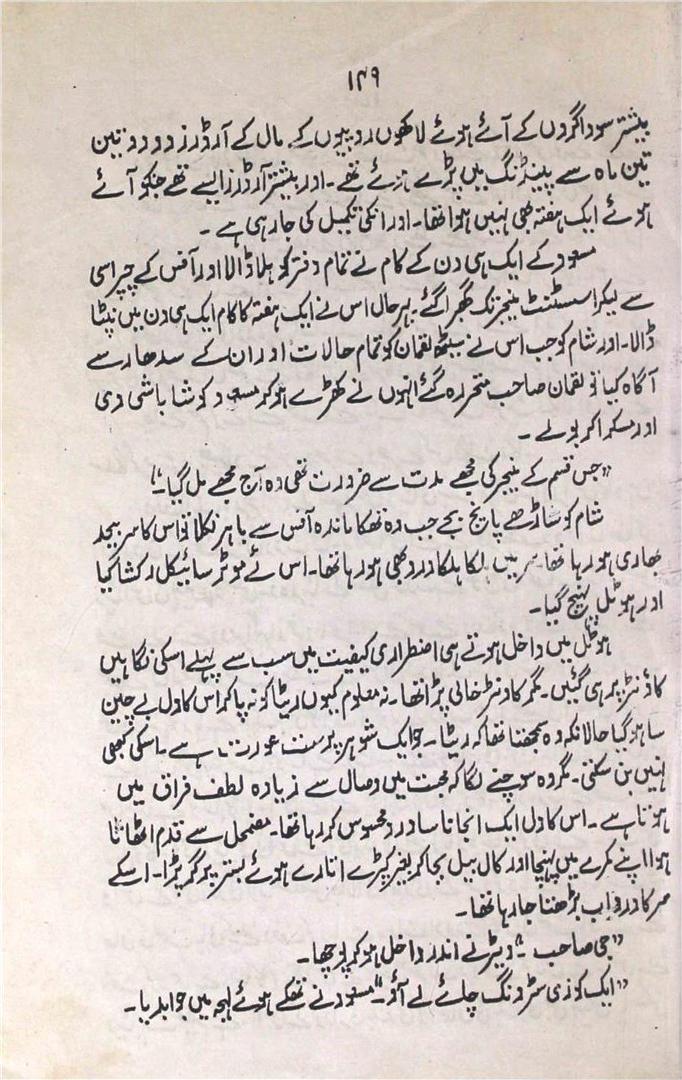 ۱۴۹
بیشتر سوداگروں کے آئے ہوئے لاکھوں روپیوں کے مال کے آرڈرز دو دو تین
تین ماہ سے پینڈنگ میں پڑے ہوئے تھے ۔ اور بیشتر آرڈرز ایسے تھے جنکو آئے
ہوئے ایک ہفتہ بھی نہیں ہوا تھا۔ اور انکی تکمیل کی جا رہی ہے ۔
مسعود کے ایک ہی دن کے کام نے تمام دفتر کو ہلا ڈالا اور آفس کے چپراسی
سے لیکر اسسٹنٹ مینجر تک گھبرا گئے۔ بہرحال اس نے ایک ہفتہ کا کام ایک ہی دن میں نپٹا
ڈالا۔ اور شام کو جب اس نے سیٹھ لقمان کو تمام حالات اور ان کے سدھار سے
آگاہ کیا تو لقمان صاحب متحیر رہ گئے انہوں نے کھڑے ہو کر مسعود کو شاباشی دی
اور مسکرا کر بولے ۔
”جس قسم کے مینجر کی مجھے مدت سے ضرورت تھی وہ آج مجھے مل گیا۔“
شام کو ساڑھے پانچ بجے جب وہ تھکا ماندہ آفس سے باہر نکلا تو اس کا سر بیحد
بھاری ہو رہا تھا سر میں ہلکا ہلکا درد بھی ہو رہا تھا۔ اس نے موٹر سائیکل رکشا کیا
اور ہوٹل پہنچ گیا۔
ہوٹل میں داخل ہوتے ہی اضطراری کیفیت میں سب سے پہلے اسکی نگاہیں
کاؤنٹر پر ہی گئیں۔ مگر کاونٹر خالی پڑا تھا۔ نہ معلوم کیوں ریٹا کو نہ پا کر اس کا دل بے چین
سا ہو گیا حالانکہ وہ سمجھتا تھا کہ ریٹا۔ جو ایک شوہر پرست عورت ہے ۔ اسکی کبھی
نہیں بن سکتی۔ مگر وہ سوچنے لگا کہ محبت میں وصال سے زیادہ لطف فراق میں
ہوتا ہے ۔ اس کا دل ایک انجانا سا درد محسوس کر رہا تھا۔ مضمحل سے قدم اٹھاتا
ہوا اپنے کمرے میں پہنچا اور کال بیل بجا کر بغیر کپڑے اتارے ہوئے بستر پر گر پڑا۔ اسکے
سر کا درد اب بڑھتا جا رہا تھا۔
”جی صاحب ۔“ ویٹر نے اندر داخل ہو کر پوچھا۔
”ایک کوزی سٹرونگ چائے لے آؤ۔“ مسعود نے تھکے ہوئے لہجہ میں جواب دیا۔